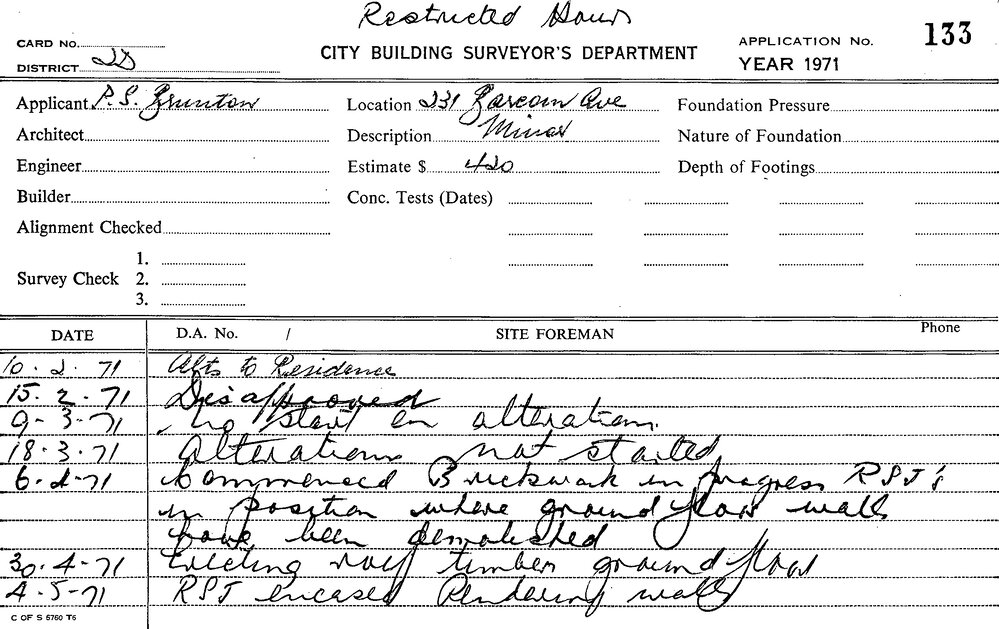 Restricted Hours
CARD No.
CITY BUILDING SURVEYOR'S DEPARTMENT
APPLICATION No. 133
DISTRICT
YEAR 1971
Applicant P.S. Brunton Location 231 Ave Foundation Pressure
Architect Description Minor Nature of Foundation
Engineer Estimate $ 420 Depth of Footings
Builder Conc. Tests (Dates)
Alignment Checked
1.
Survey Check 2.
3.
DATE D.A. No. / SITE FOREMAN Phone
10.2.71 Alts to Residence
15.2.71 Disapproved
9-3-71 No start on alteration.
18.3.71 Alterations not started
6-4-71 Commenced Brickwork in progress RSJ's
in position where ground floor walls
have been demolished
30.4.71 Erecting roof timbers ground floor
4-5-71 RSJ encased Rendering walls
C OF S 5760 T6